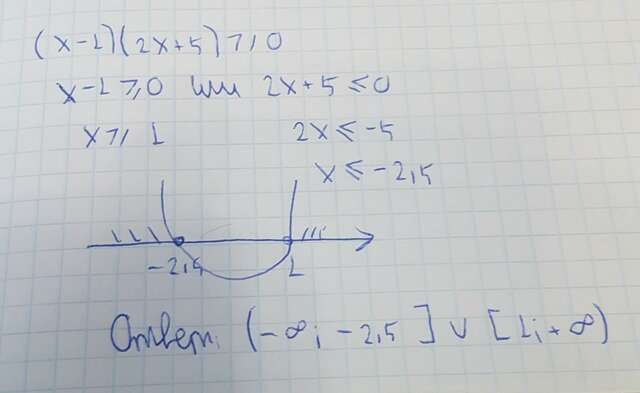 (x-1)(2x+5)⩾0
x-1⩾0 или 2x+5⩽0
x⩾1 2x⩽-5
x⩽-2,5
-2,5 1
Ответ: (-∞; -2,5] ∪ [1; +∞)